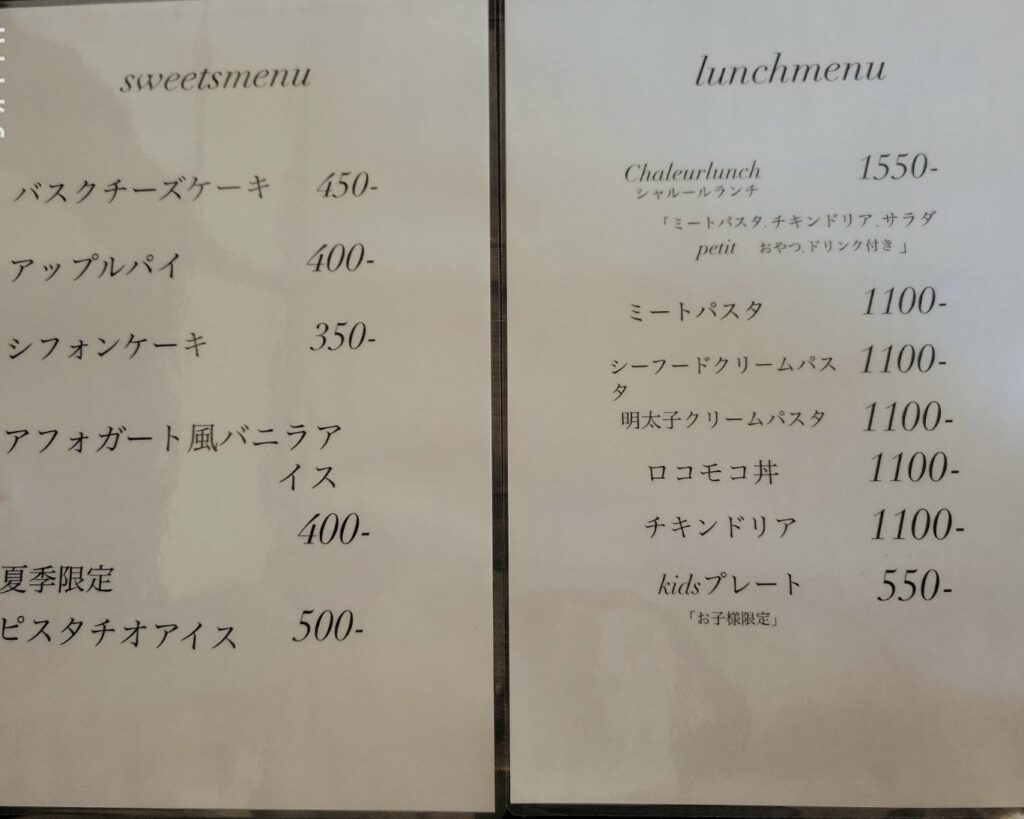 sweetsmenu
バスクチーズケーキ 450-
アップルパイ 400-
シフォンケーキ 350-
アフォガート風バニラア
イス
400-
夏季限定
ピスタチオアイス 500-
lunchmenu
Chaleurlunch 1550-
シャルールランチ
「ミートパスタ.チキンドリア.サラダ
petit おやつ.ドリンク付き」
ミートパスタ 1100-
シーフードクリームパス 1100-
タ
明太子クリームパスタ 1100-
ロコモコ丼 1100-
チキンドリア 1100-
kidsプレート 550-
「お子様限定」